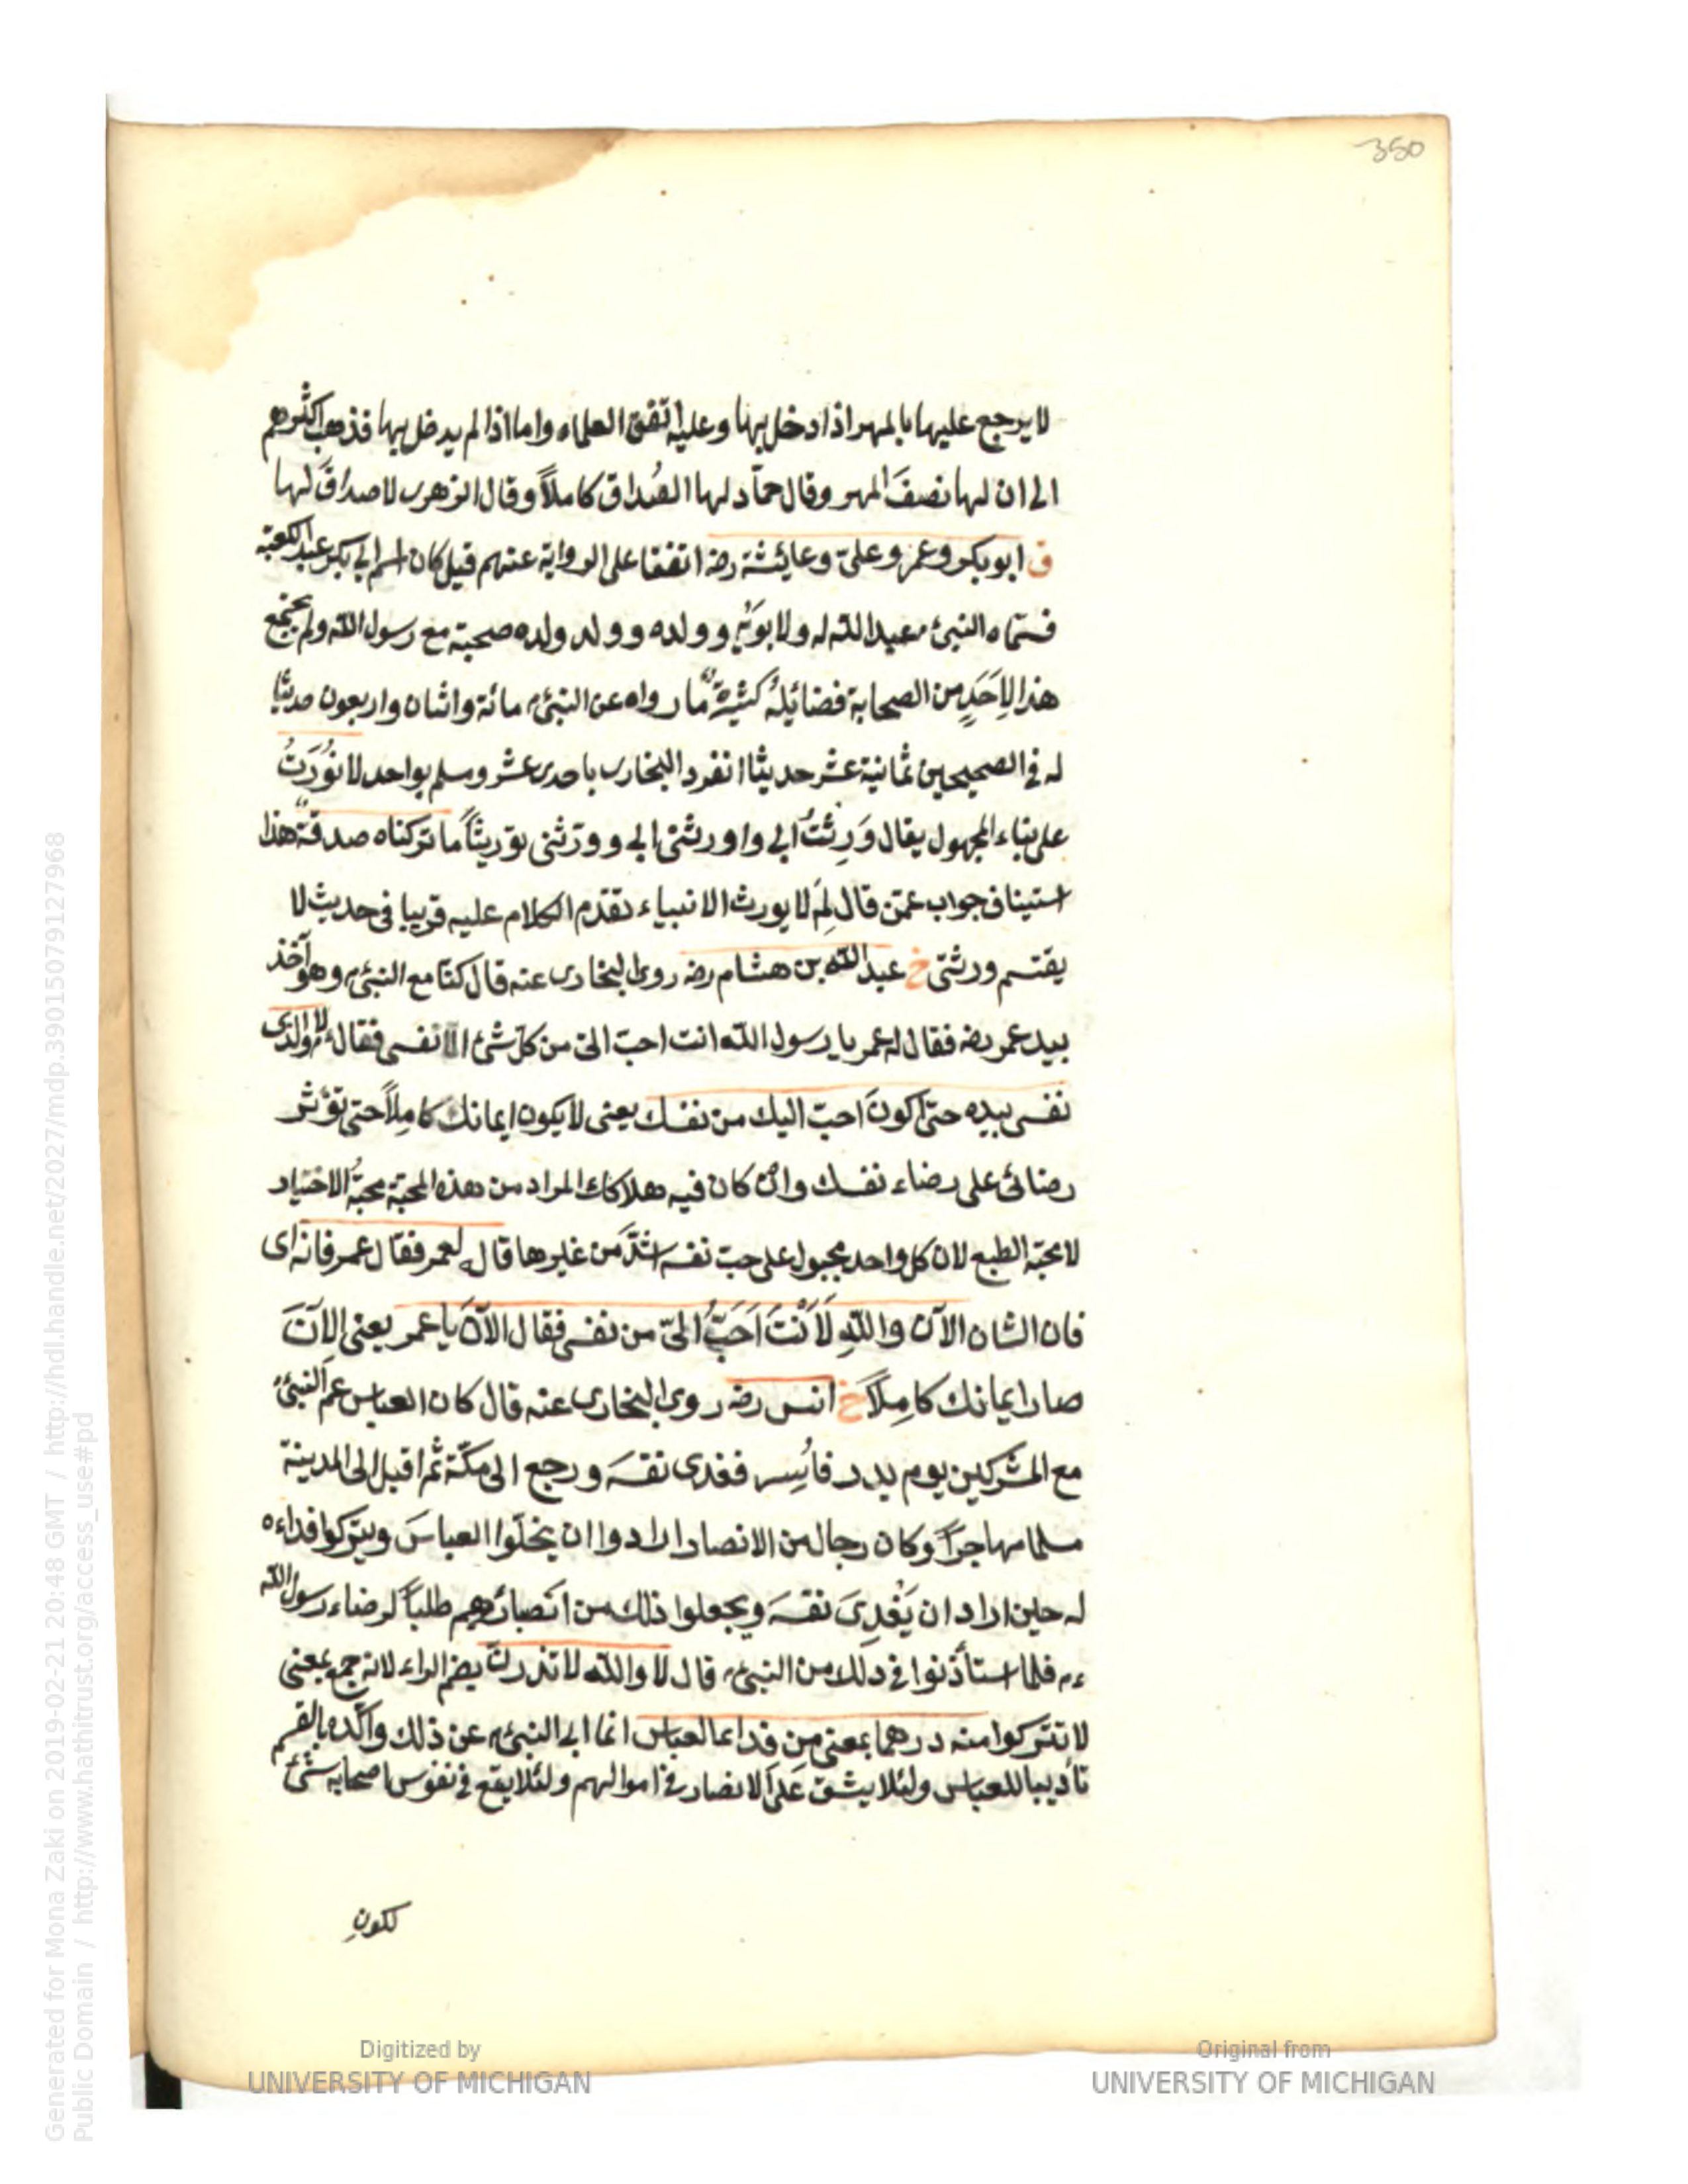 350
لا يرجع عليها بالمهر اذا دخل بها وعليه اتفق العلماء واما اذا لم يدخل بها فذهب اكثرهم
الى ان لها نصفَ المهر وقال حمّاد لها الصُداق كاملاً وقال الزهرى لا صداقَ لها
ق ابو بكر وعمر وعلىّ وعايشة رضه اتفقا على الرواية عنهم قيل كان اسم ابى بكر عبد الكعبة
فسمّاه النبىء عبد الله له ولابويه وولده وولد ولده صحبة مع رسول الله ولم يجتمع
هذا لاِحَدٍ من الصحابة فضائيله كثيرة ما رواه عن النبىء مائة واثنان واربعون حديثا
له فى الصحيحين ثمانية عشر حديثا انفرد البخارى باحدى عشر ومسلم بواحد لا نُورَثُ
على بناء المجهول يقال وَرِثْتُ ابى واورثنى ابى وورّثنى توريثاً ما تركناه صدقةٌ هذا
استيناف جواب عمّن قال لِمَ لا يورث الانبياء تقدّم الكلام عليه قريبا فى حديث لا
يقتسم ورثتى خ عبد الله بن هشام رضه روى البخارى عنه قال كنّا مع النبىء وهو آخذ
بيد عمر رضه فقال له عمر يا رسول الله انت احبّ الىّ من كل شئ الا نفسى فقالء لا والذى
نفسى بيده حتى اكونَ احبّ اليك من نفسك يعنى لا يكون ايمانك كامِلاً حتى تؤثر
رضائى على رضاء نفسك وان كان فيه هلاكك المراد من هذه المحبّة محبّةُ الاختيار
لا محبّة الطبع لان كل واحد مجبول على حبّ نفسه اشدّ من غيرها قاله لعمر فقال عمر فانه اى
فان الشان الآن واللهِ لَاَنْتَ اَحَبُّ الىّ من نفسى فقال الآنَ يا عمر يعنى الآنَ
صار ايمانك كامِلاً خ انس رضه روى البخارى عنه قال كان العباس عم النبىء
مع المشركين يوم بدر فاُسِر ففدى نفسَه ورجع الى مكّة ثم اقبل الى المدينة
مسلما مهاجراً وكان رجال من الانصار ارادوا ان يخلّوا العباسَ ويتركوا فداءه
له حين اراد ان يَفْدِىَ نفسَه ويجعلوا ذلك من انصبائهم طلباً لرضاء رسول الله
ء م فلما استأذنوا فى ذلك من النبىء قال لا والله لا تذرُنّ بضم الراء لانه جمع بمعنى
لا تتركوا منه درهما بمعنى من فداء العباس انما ابى النبىء عن ذلك واكّده بالقسم
تأديبا للعباس ولئلا يشقّ عَلَى الانصار فى اموالهم ولئلا يقع فى نفوس اصحابه شئ
لكونِ
Generated for Mona Zaki on 2019-02-21 20:48 GMT / http://hdl.handle.net/2027/mdp.39015079127968
Public Domain / http://www.hathitrust.org/access_use#pd
Digitized by
UNIVERSITY OF MICHIGAN
Original from
UNIVERSITY OF MICHIGAN